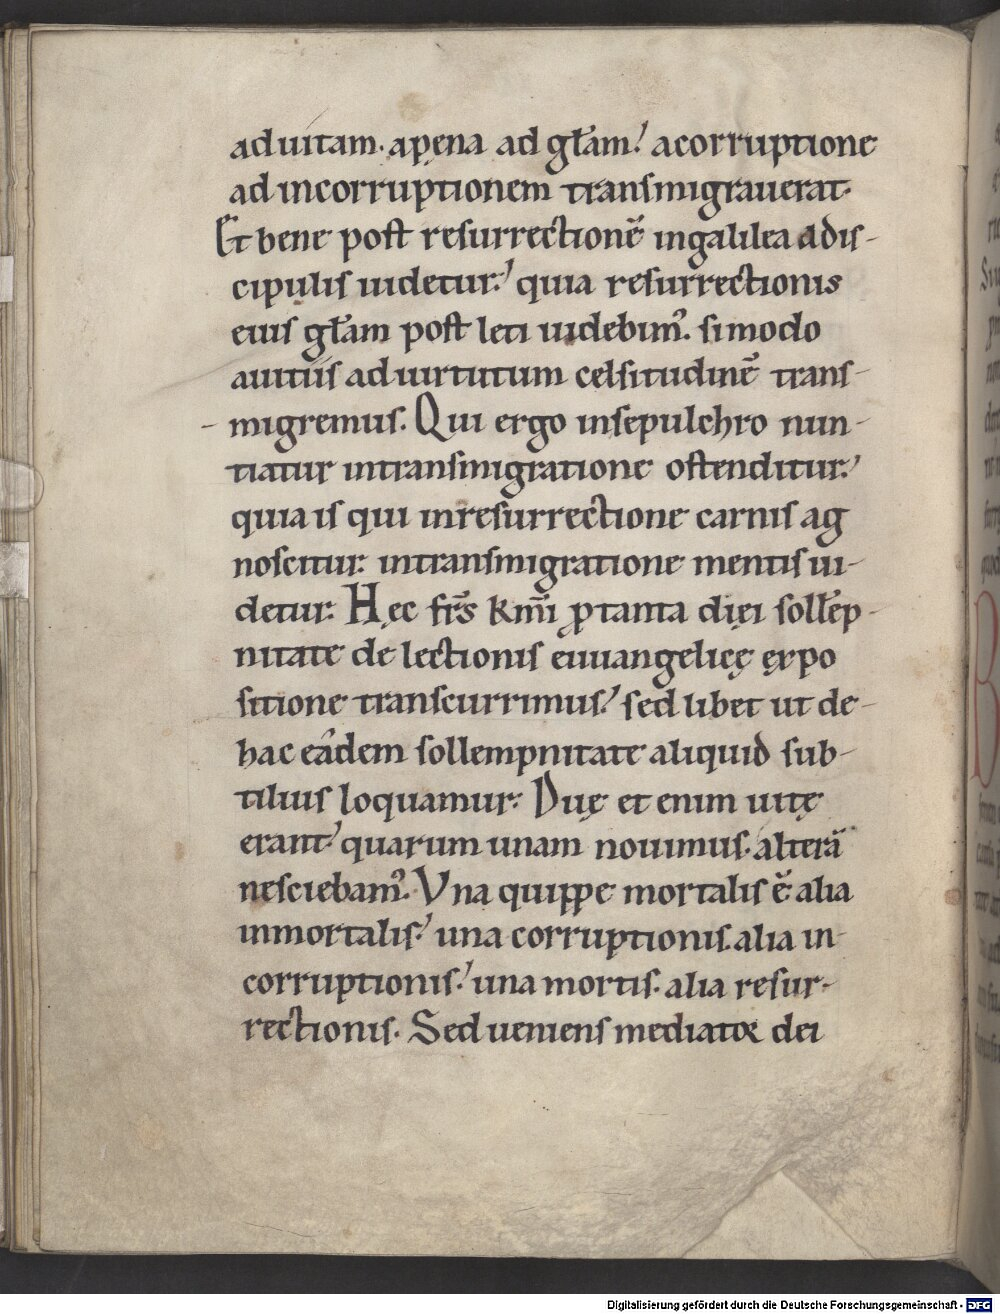 ad uitam. apena ad gl̅am! acorruptione
ad incorruptionem transmigrauerat.
Et bene post resurrectionē ingalilea adis-
cipulis uidetur! quia resurrectionis
eius gl̅am post leti uidebim᾽. si modo
auitiis ad uirtutum celsitudinē trans-
migremus. Qui ergo insepulchro nun-
tiatur intransmigratione ostenditur!
quia is qui inresurrectione carnis ag
noscitur. intransmigratione mentis ui-
detur. Hęc fr̅s km̅i ꝓ tanta diei soll̅ep-
nitate de lectionis euuangelicę expo
sitione transcurrimus! sed libet ut de-
hac eadem sollempnitate aliquid sub-
tilius loquamur. Duę et enim uitę
erant! quarum unam nouimus. alterā
nesciebam᾽. Vna quippe mortalis ē alia
inmortalis! una corruptionis. alia in-
corruptionis! una mortis. alia resur-
rectionis. Sed ueniens mediator dei
Digitalisierung gefördert durch die Deutsche Forschungsgemeinschaft - DFG